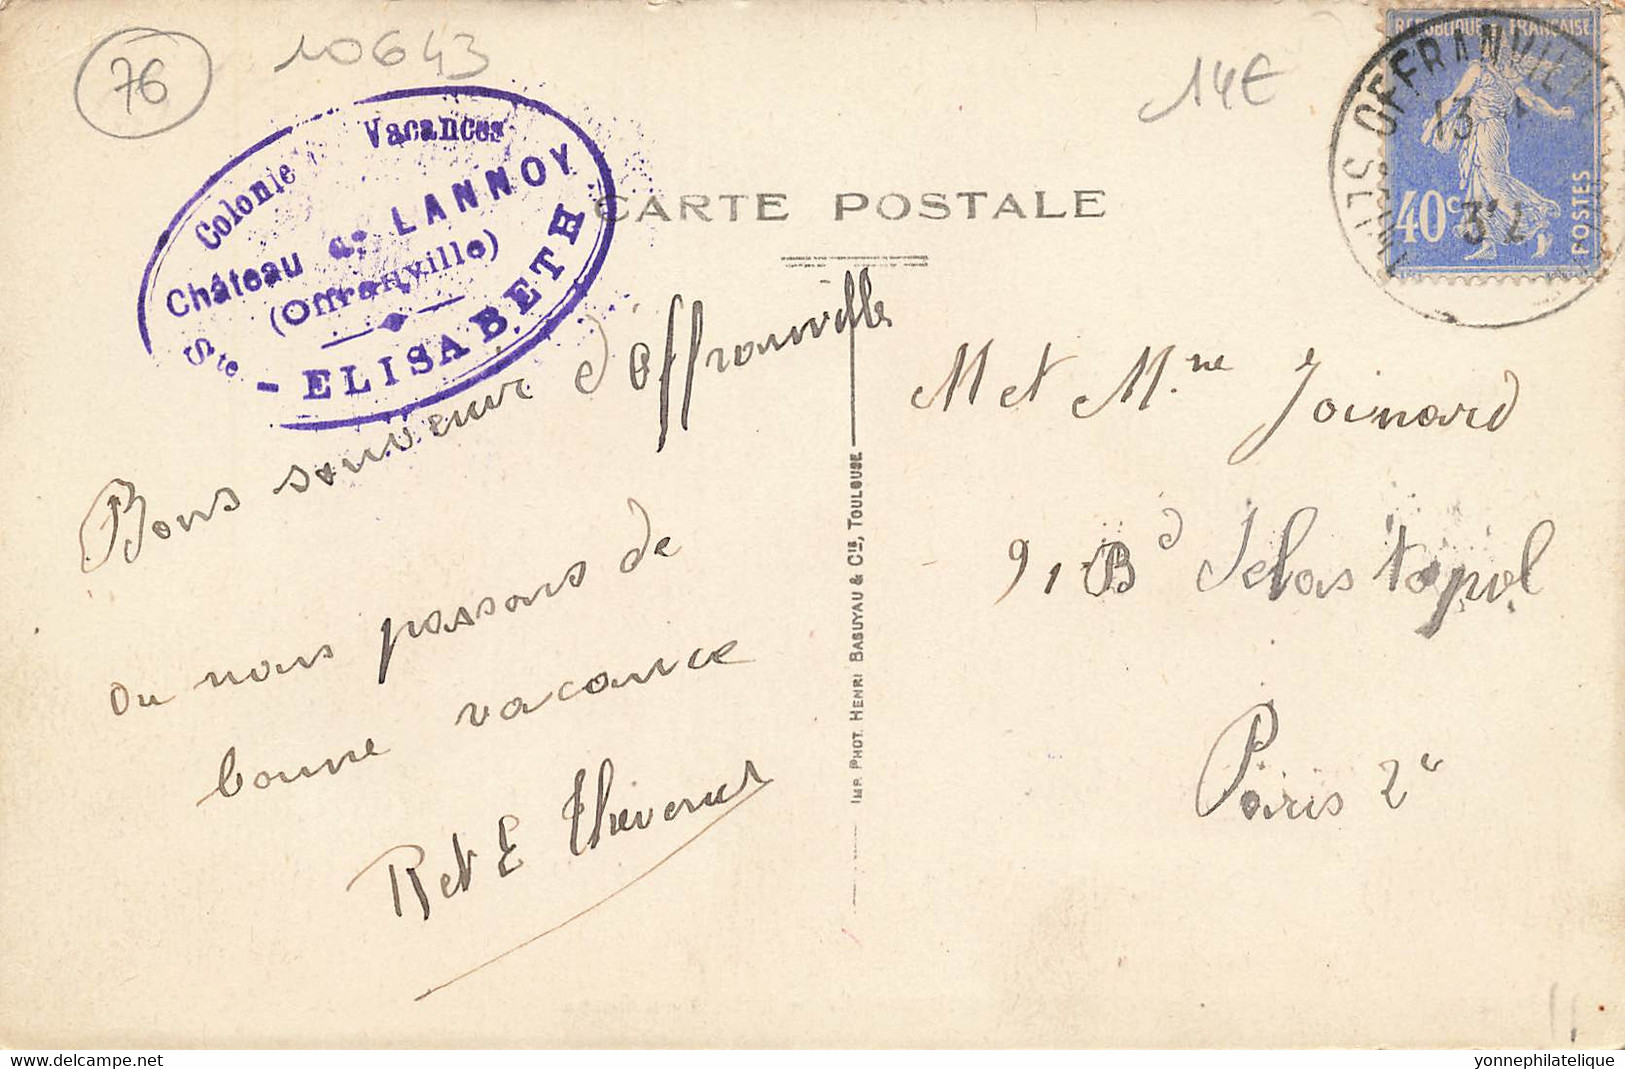 76
10643
14€
Colonie Vacances
Château de LANNOY
(Offranville)
Ste - ELISABETH
CARTE POSTALE
REPUBLIQUE FRANÇAISE
40c
POSTES
OFFRANVILLE
13
Bons souvenir d'Offranville
ou nous passons de
bonne vacance
R et E
IMP. PHOT. HENRI BASUYAU & CIE, TOULOUSE
M et Mme Joinard
91 Bd Sebastopol
Paris 2e
yonnephilatelique